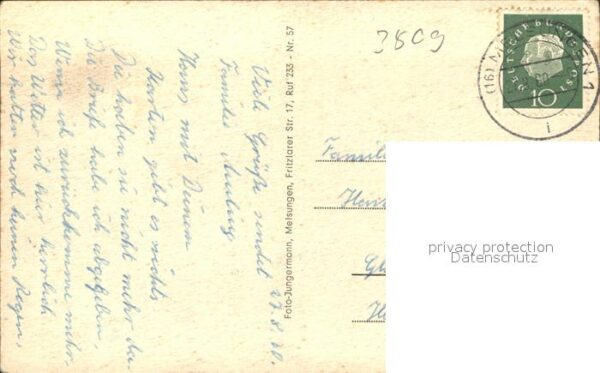 3809
(16) M
EN 1
i
DEUTSCHE BUNDESPOST
10
Viele Grüße sendet 27.8.60.
Familie
Hans mit Deinen
Karten gibt es nichts
Die haben sie nicht mehr da.
Die Briefe habe ich abgegeben,
Wenn ich zurückkomme mehr.
Das Wetter ist hier herrlich
Wir hatten noch keinen Regen,
Foto-Jungermann, Melsungen, Fritzlarer Str. 17, Ruf 233 - Nr. 57
Famil
privacy protection
Datenschutz